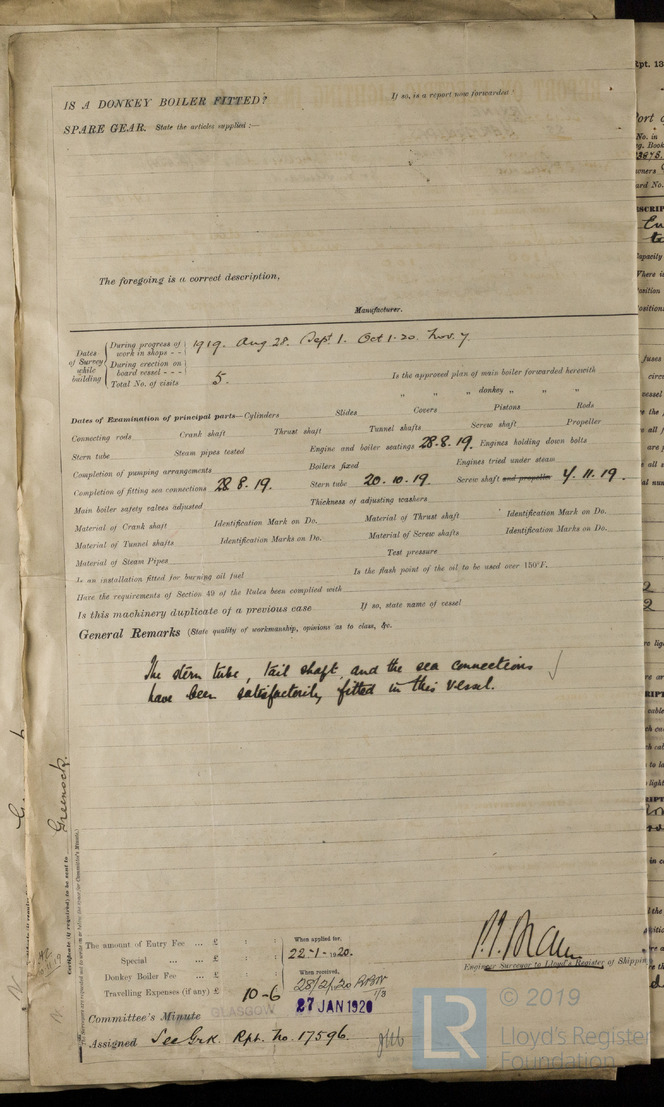 IS A DONKEY BOILER FITTED? If so, is a report now forwarded?
SPARE GEAR. State the articles supplied :—
The foregoing is a correct description,
Manufacturer.
Dates of Survey while building
During progress of work in shops - - 1919. Aug 28. Sept. 1. Oct 1-20. Nov. 4
During erection on board vessel - - -
Total No. of visits 5.
Is the approved plan of main boiler forwarded herewith
" " " donkey " " "
Dates of Examination of principal parts—Cylinders Slides Covers Pistons Rods
Connecting rods Crank shaft Thrust shaft Tunnel shafts Screw shaft Propeller
Stern tube Steam pipes tested Engine and boiler seatings 28.8.19. Engines holding down bolts
Completion of pumping arrangements Boilers fixed Engines tried under steam
Completion of fitting sea connections 28 8.19. Stern tube 20.10.19. Screw shaft and propeller 4.11.19.
Main boiler safety valves adjusted Thickness of adjusting washers
Material of Crank shaft Identification Mark on Do. Material of Thrust shaft Identification Mark on Do.
Material of Tunnel shafts Identification Marks on Do. Material of Screw shafts Identification Marks on Do.
Material of Steam Pipes Test pressure
Is an installation fitted for burning oil fuel Is the flash point of the oil to be used over 150°F.
Have the requirements of Section 49 of the Rules been complied with
Is this machinery duplicate of a previous case If so, state name of vessel
General Remarks (State quality of workmanship, opinions as to class, &c.
The stern tube, tail shaft and the sea connections
have been satisfactorily fitted in this vessel.
Greenock
Certificate (if required) to be sent to
The amount of Entry Fee ... £ : : When applied for,
Special ... ... £ : : 22-1-1920.
Donkey Boiler Fee ... £ : : When received,
Travelling Expenses (if any) £ 10-6 28/2/20
Engineer Surveyor to Lloyd's Register of Shipping
Committee's Minute GLASGOW 27 JAN 1920
Assigned See Grk. Rpt. No. 17596.
LR
© 2019
Lloyd's Register
Foundation